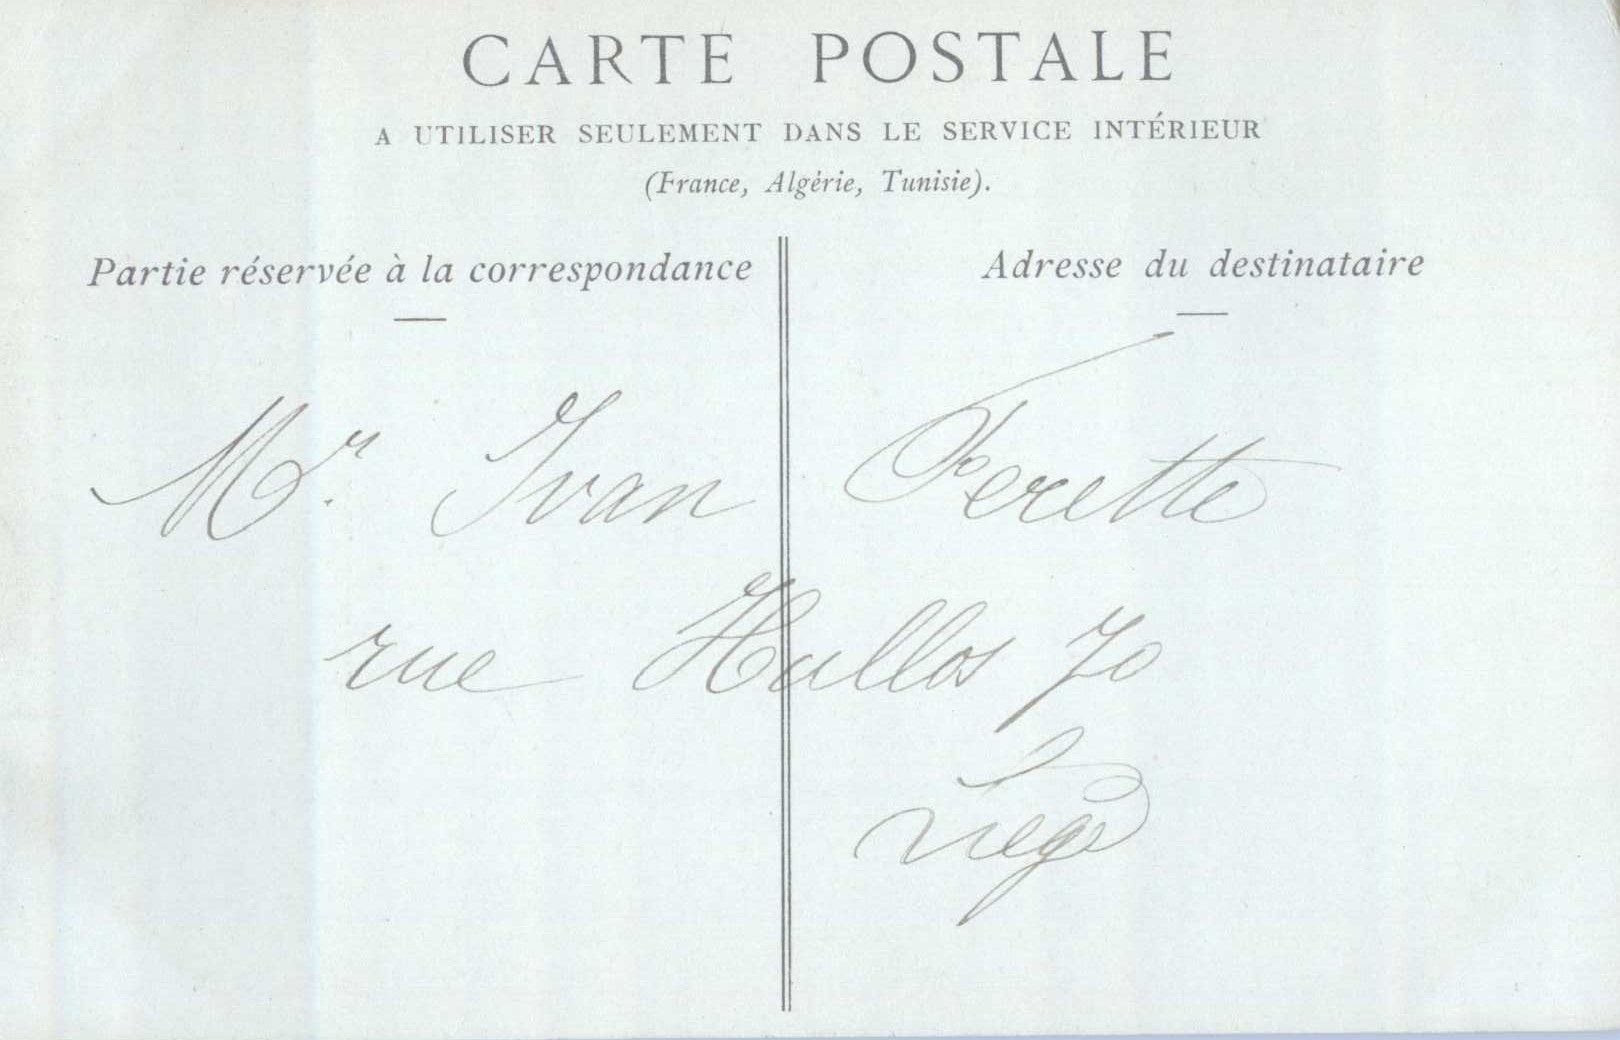 CARTE POSTALE
A UTILISER SEULEMENT DANS LE SERVICE INTÉRIEUR
(France, Algérie, Tunisie).
Partie réservée à la correspondance
Adresse du destinataire
Mr. Ivan Ferette
rue Hullos 70
Liège